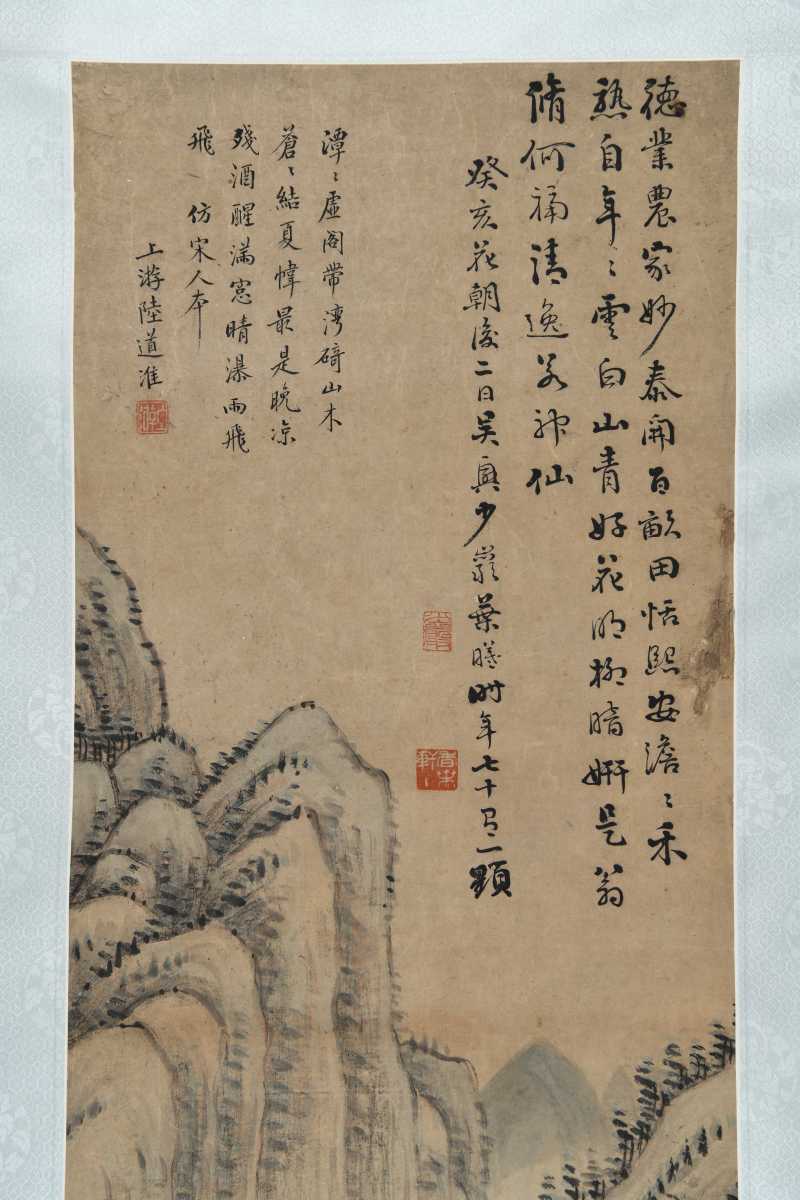 德業農家妙泰開百畝田恬熙安澹〻禾
熟自年〻雲白山青好花明柳暗妍是翁
脩何福清逸若神仙
癸亥花朝後二日吴興少巖葉曦時年七十有二題
潭〻虛阁帶湾碕山木
蒼〻結夏幃最是晚凉
殘酒醒满窓晴瀑雨飛
飛 仿宋人本
上游陸道淮